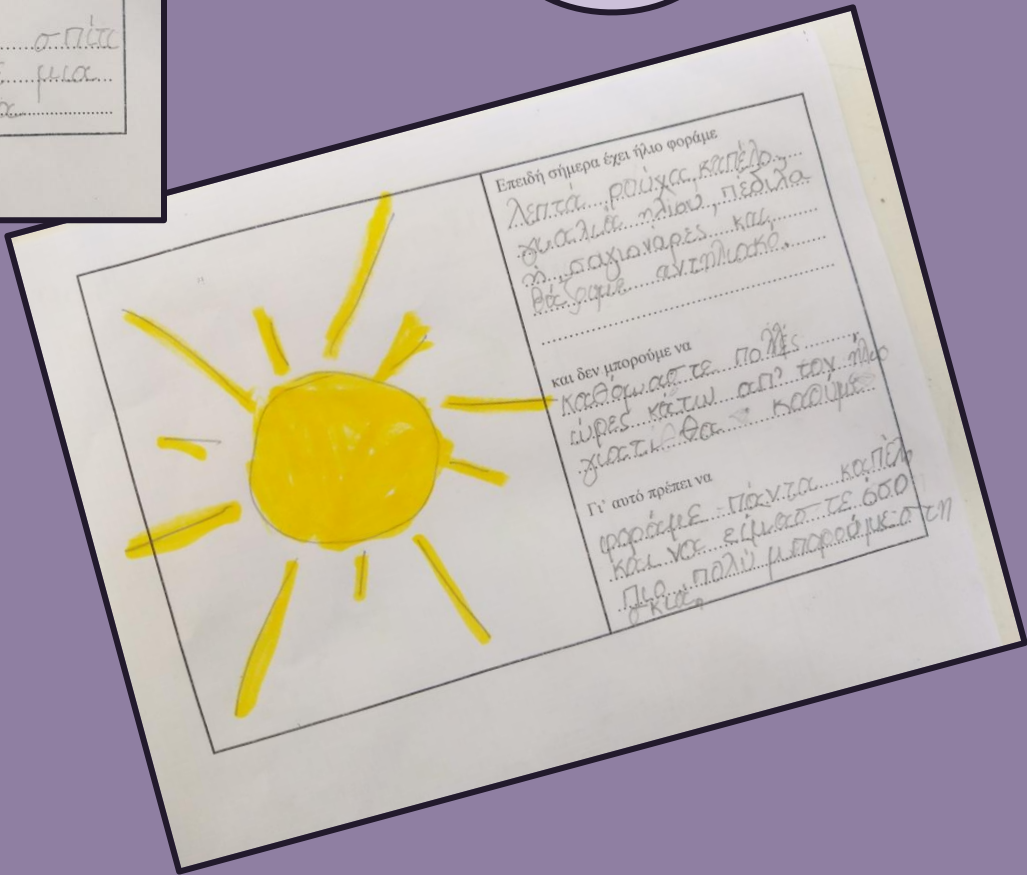 σπίτι
μια
Επειδή σήμερα έχει ήλιο φοράμε
λεπτά ρούχα, καπέλο,
γυαλιά ηλίου, πέδιλα
ή σαγιονάρες και
βάζουμε αντηλιακό.
και δεν μπορούμε να
καθόμαστε πολλές
ώρες κάτω απ' τον ήλιο
γιατί θα καούμε
Γι' αυτό πρέπει να
φοράμε πάντα καπέλ
και να είμαστε όσο
πιο πολύ μπορούμε στη
σκιά,